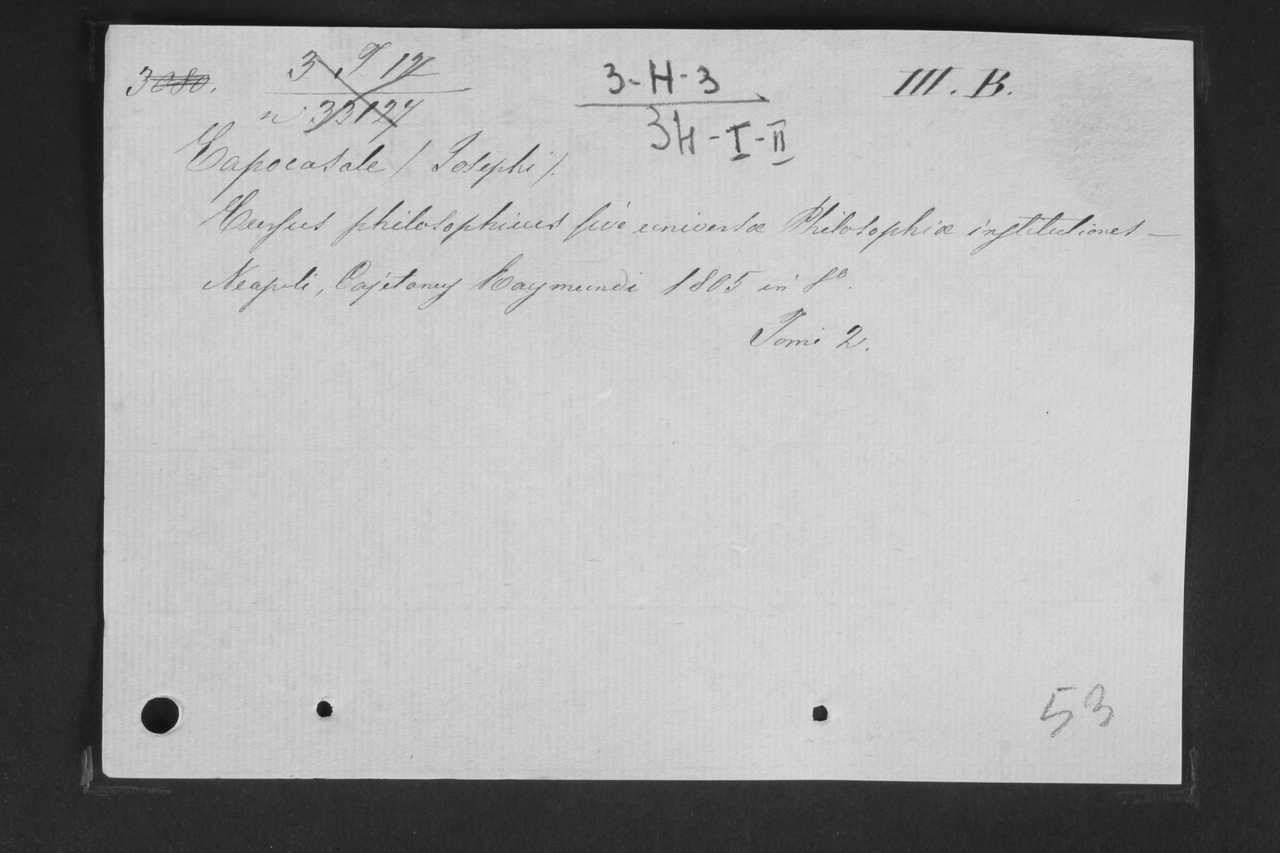 3080.
3 T 12
n. 33127
3-H-3
34-I-II
III. B.
Capocasale (Josephi).
Cursus philosophicus sive universæ Philosophiæ institutiones —
Neapoli, Cajetanus Raymundi 1805 in 8º.
Tomi 2.
53